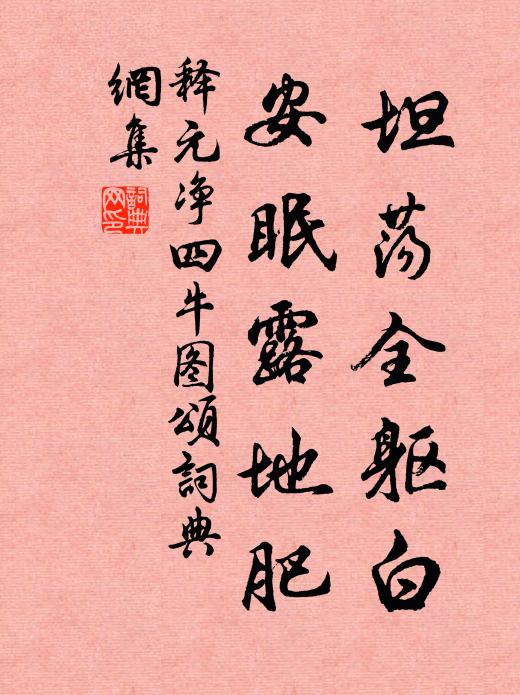 坦荡全躯白
安眠露地肥
释元净四牛图颂詞典
網集
詞典
网印